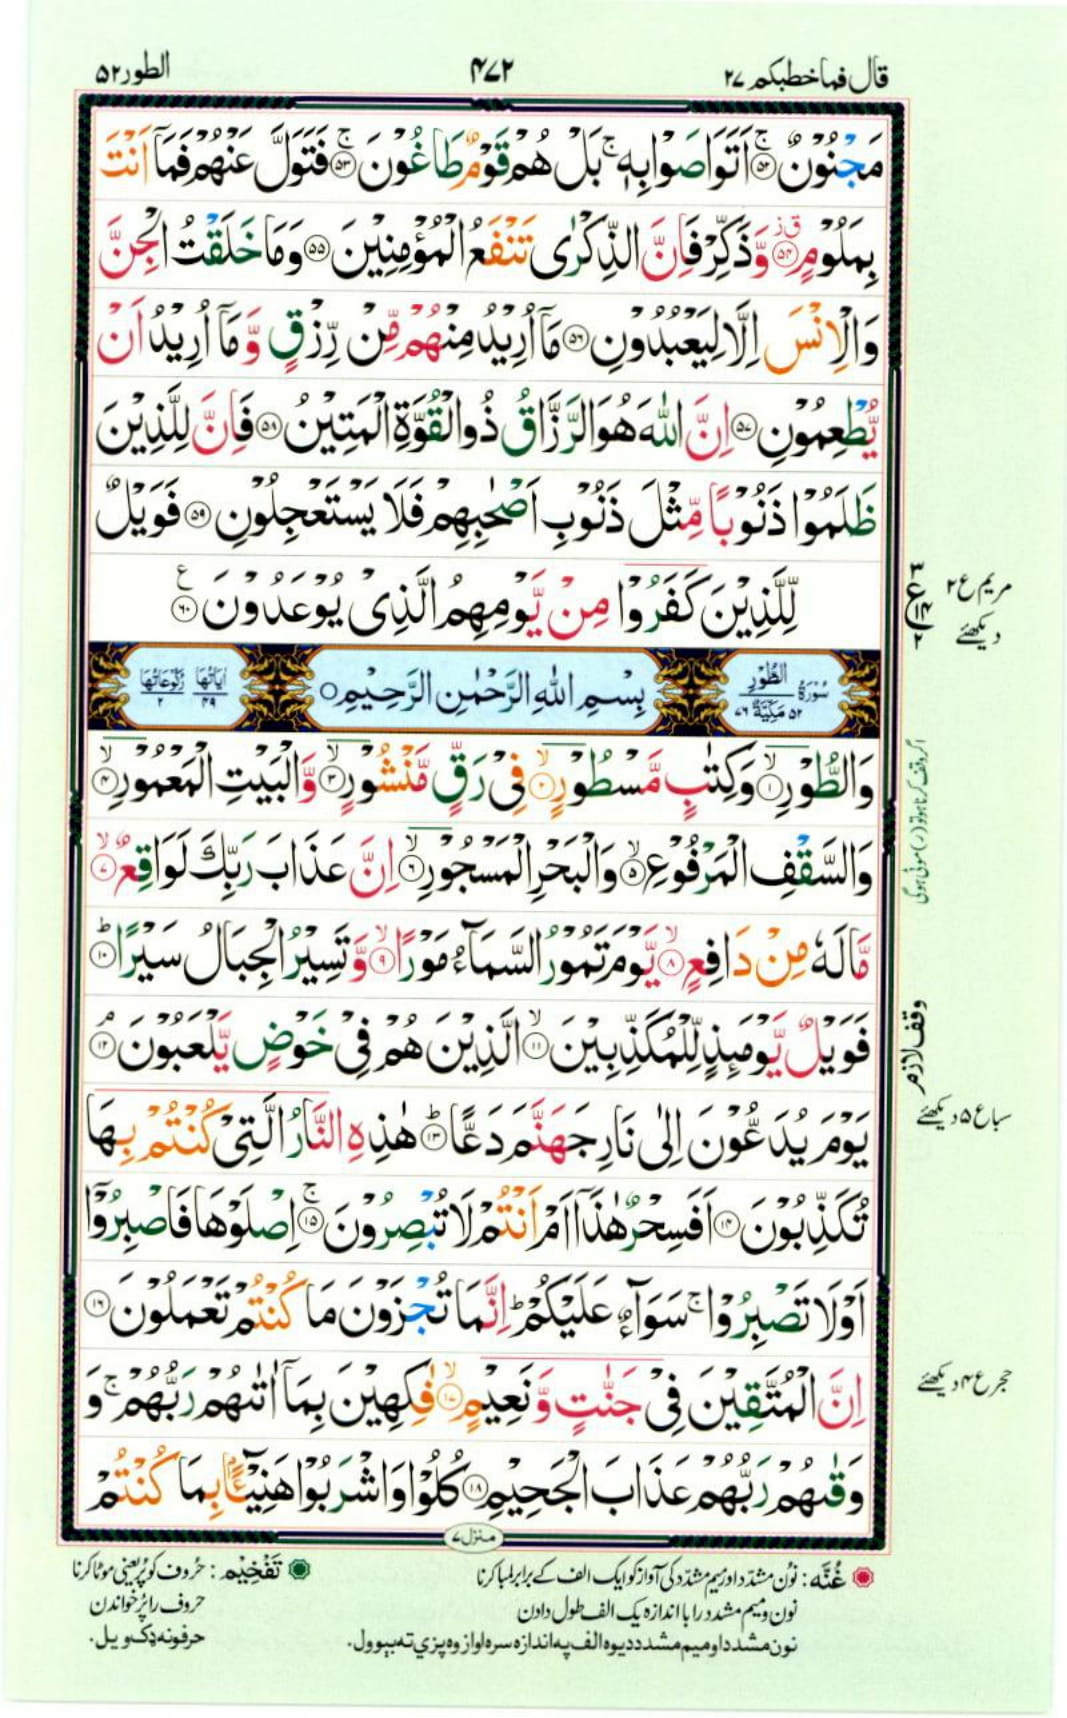 قال فما خطبکم ۲۷
۴۷۲
الطور ۵۲
مَجْنُوْنٌ ﴿۵۲﴾ۚ اَتَوَاصَوْا بِهٖ ۚ بَلْ هُمْ قَوْمٌ طَاغُوْنَ ﴿۵۳﴾ۚ فَتَوَلَّ عَنْهُمْ فَمَاۤ اَنْتَ
بِمَلُوْمٍ ﴿۵۴﴾ وَّذَكِّرْ فَاِنَّ الذِّكْرٰى تَنْفَعُ الْمُؤْمِنِيْنَ ﴿۵۵﴾ وَمَا خَلَقْتُ الْجِنَّ
وَالْاِنْسَ اِلَّا لِيَعْبُدُوْنِ ﴿۵۶﴾ مَاۤ اُرِيْدُ مِنْهُمْ مِّنْ رِّزْقٍ وَّمَاۤ اُرِيْدُ اَنْ
يُّطْعِمُوْنِ ﴿۵۷﴾ اِنَّ اللّٰهَ هُوَ الرَّزَّاقُ ذُو الْقُوَّةِ الْمَتِيْنُ ﴿۵۸﴾ فَاِنَّ لِلَّذِيْنَ
ظَلَمُوْا ذَنُوْبًا مِّثْلَ ذَنُوْبِ اَصْحٰبِهِمْ فَلَا يَسْتَعْجِلُوْنِ ﴿۵۹﴾ فَوَيْلٌ
لِّلَّذِيْنَ كَفَرُوْا مِنْ يَّوْمِهِمُ الَّذِىْ يُوْعَدُوْنَ ﴿۶۰﴾ ع
۳
ع ۱۴
۲
مریم ع ۲
دیکھئے
سُوْرَةُ الطُّوْرِ
۵۲ مَكِّيَّةٌ ۷۶
بِسْمِ اللّٰهِ الرَّحْمٰنِ الرَّحِيْمِ
اٰيَاتُهَا ۴۹
رُكُوْعَاتُهَا ۲
وَالطُّوْرِ ﴿۱﴾ۙ وَكِتٰبٍ مَّسْطُوْرٍ ﴿۲﴾ۙ فِىْ رَقٍّ مَّنْشُوْرٍ ﴿۳﴾ۙ وَّالْبَيْتِ الْمَعْمُوْرِ ﴿۴﴾ۙ
وَالسَّقْفِ الْمَرْفُوْعِ ﴿۵﴾ۙ وَالْبَحْرِ الْمَسْجُوْرِ ﴿۶﴾ۙ اِنَّ عَذَابَ رَبِّكَ لَوَاقِعٌ ﴿۷﴾ۙ
مَّا لَهٗ مِنْ دَافِعٍ ﴿۸﴾ۙ يَّوْمَ تَمُوْرُ السَّمَآءُ مَوْرًا ﴿۹﴾ۙ وَّتَسِيْرُ الْجِبَالُ سَيْرًا ﴿۱۰﴾ؕ
فَوَيْلٌ يَّوْمَئِذٍ لِّلْمُكَذِّبِيْنَ ﴿۱۱﴾ۙ الَّذِيْنَ هُمْ فِىْ خَوْضٍ يَّلْعَبُوْنَ ﴿۱۲﴾ۘ
وقف لازم
يَوْمَ يُدَعُّوْنَ اِلٰى نَارِ جَهَنَّمَ دَعًّا ﴿۱۳﴾ؕ هٰذِهِ النَّارُ الَّتِىْ كُنْتُمْ بِهَا
سبا ع ۵ دیکھئے
تُكَذِّبُوْنَ ﴿۱۴﴾ اَفَسِحْرٌ هٰذَاۤ اَمْ اَنْتُمْ لَا تُبْصِرُوْنَ ﴿۱۵﴾ۚ اِصْلَوْهَا فَاصْبِرُوْۤا
اَوْ لَا تَصْبِرُوْا ۚ سَوَآءٌ عَلَيْكُمْ ؕ اِنَّمَا تُجْزَوْنَ مَا كُنْتُمْ تَعْمَلُوْنَ ﴿۱۶﴾
اِنَّ الْمُتَّقِيْنَ فِىْ جَنّٰتٍ وَّنَعِيْمٍ ﴿۱۷﴾ۙ فٰكِهِيْنَ بِمَاۤ اٰتٰىهُمْ رَبُّهُمْ ۚ وَ
حجر ع ۴ دیکھئے
وَقٰىهُمْ رَبُّهُمْ عَذَابَ الْجَحِيْمِ ﴿۱۸﴾ كُلُوْا وَاشْرَبُوْا هَنِيْٓـًٔۢا بِمَا كُنْتُمْ
منزل ۷
غُنَّه: نون مشدد اور میم مشدد کی آواز کو ایک الف کے برابر لمبا کرنا
نون و میم مشدد را با اندازه یک الف طول دادن
نون مشدد او میم مشدد دیوه الف په اندازه سره اواز وه پزي ته بیوول.
تَفْخِیْم: حُروف کو پُر یعنی موٹا کرنا
حروف را پُر خواندن
حرفونه ډک ویل.